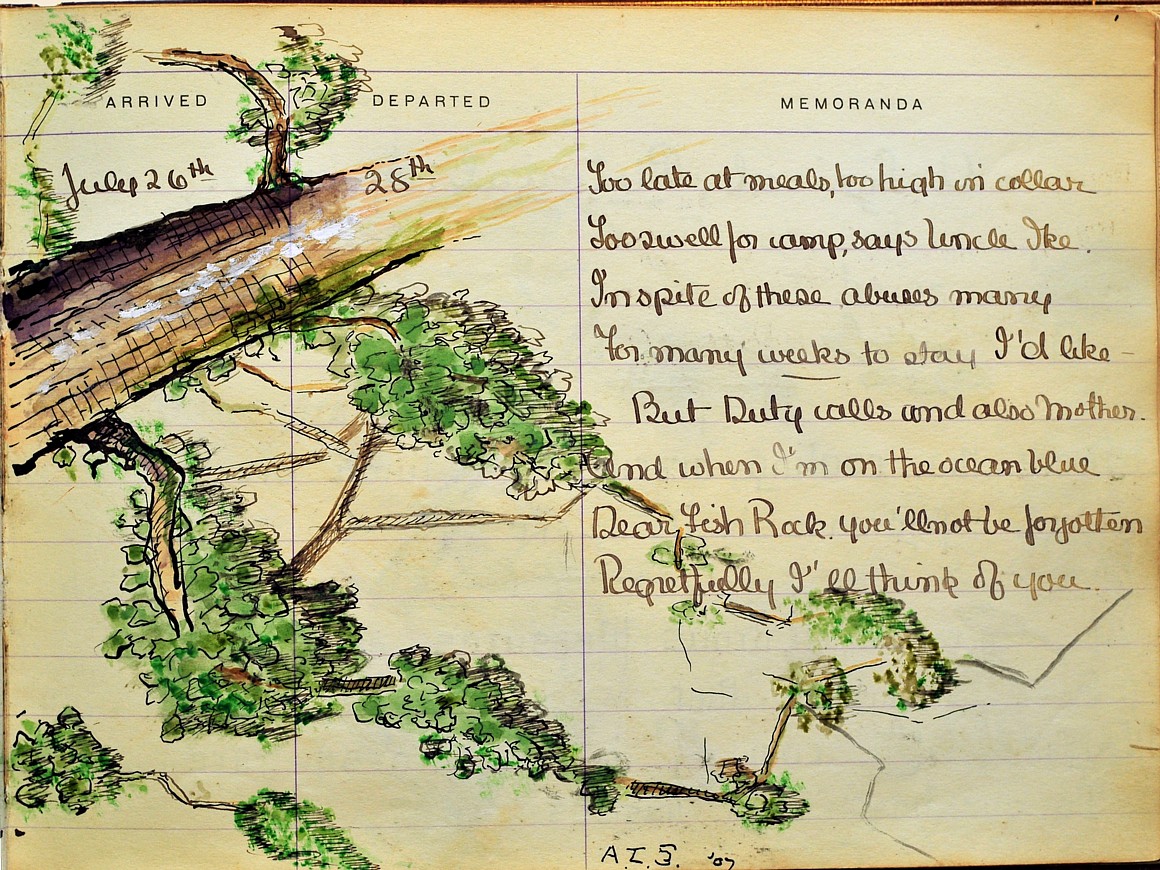 ARRIVED DEPARTED MEMORANDA
July 26th 28th Too late at meals, too high in collar
Too swell for camp, says Uncle Ike.
In spite of these abuses many
For many weeks to stay I'd like –
But Duty calls and also Mother.
And when I'm on the ocean blue
Dear Fish Rock. you'll not be forgotten
Regretfully I'll think of you.
A.I.S. '07